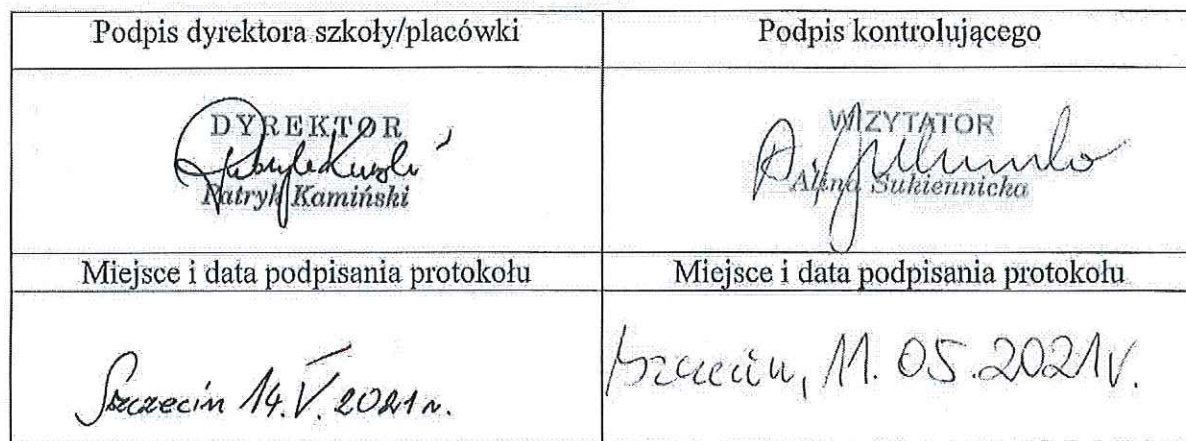 Podpis dyrektora szkoły/placówki
Podpis kontrolującego
DYREKTOR
Patryk Kamiński
WIZYTATOR
Alina Sukiennicka
Miejsce i data podpisania protokołu
Miejsce i data podpisania protokołu
Szczecin 14.V.2021 r.
Szczecin, 11.05.2021r.